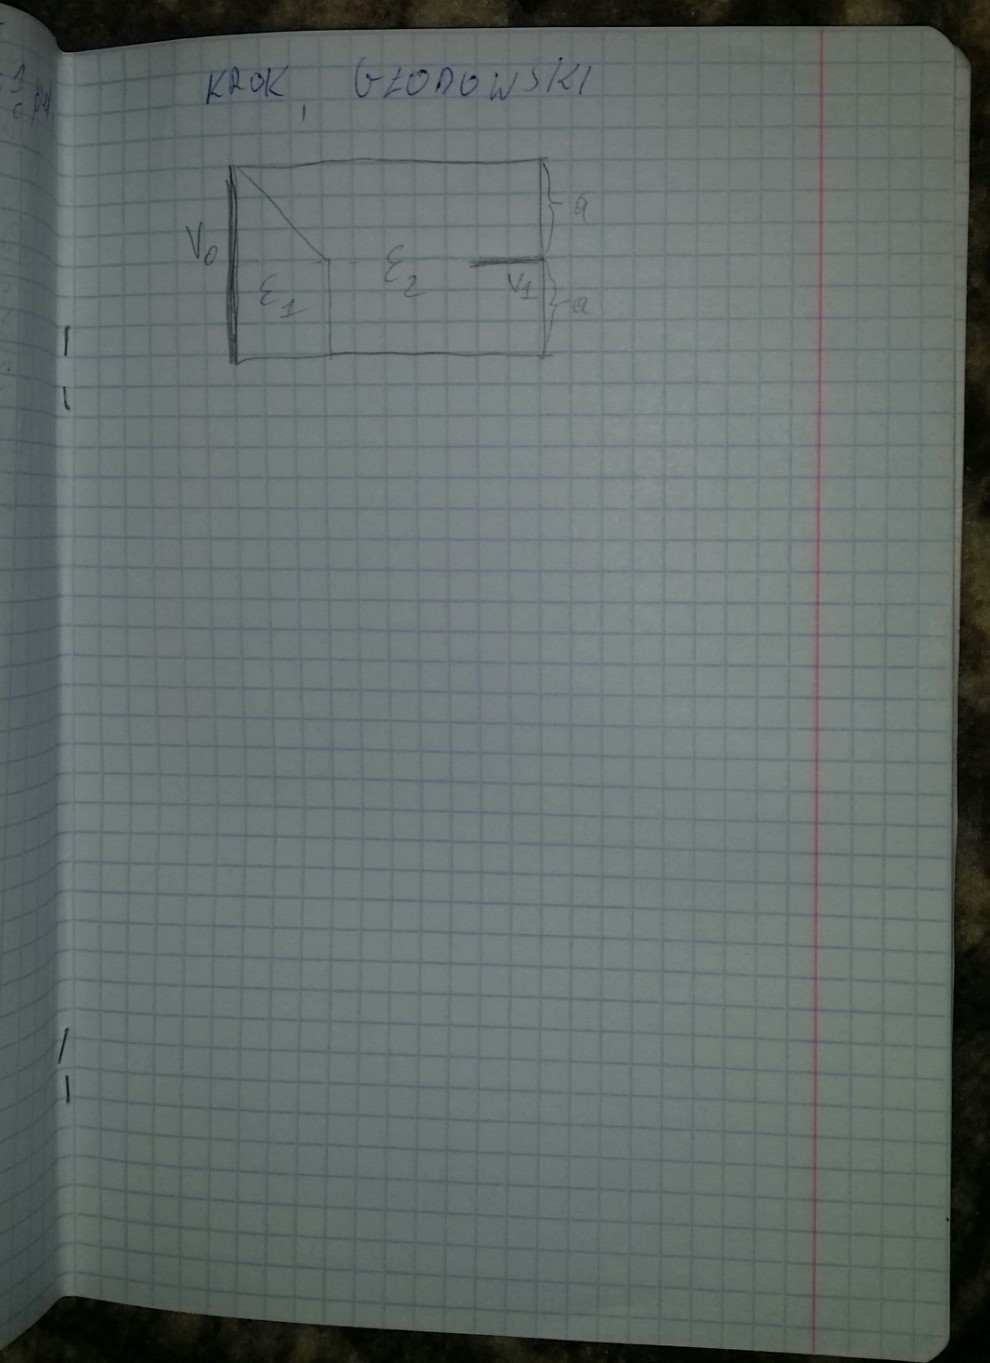 KROK, GŁODOWSKI
a
V0
ε2
ε1
V1
a